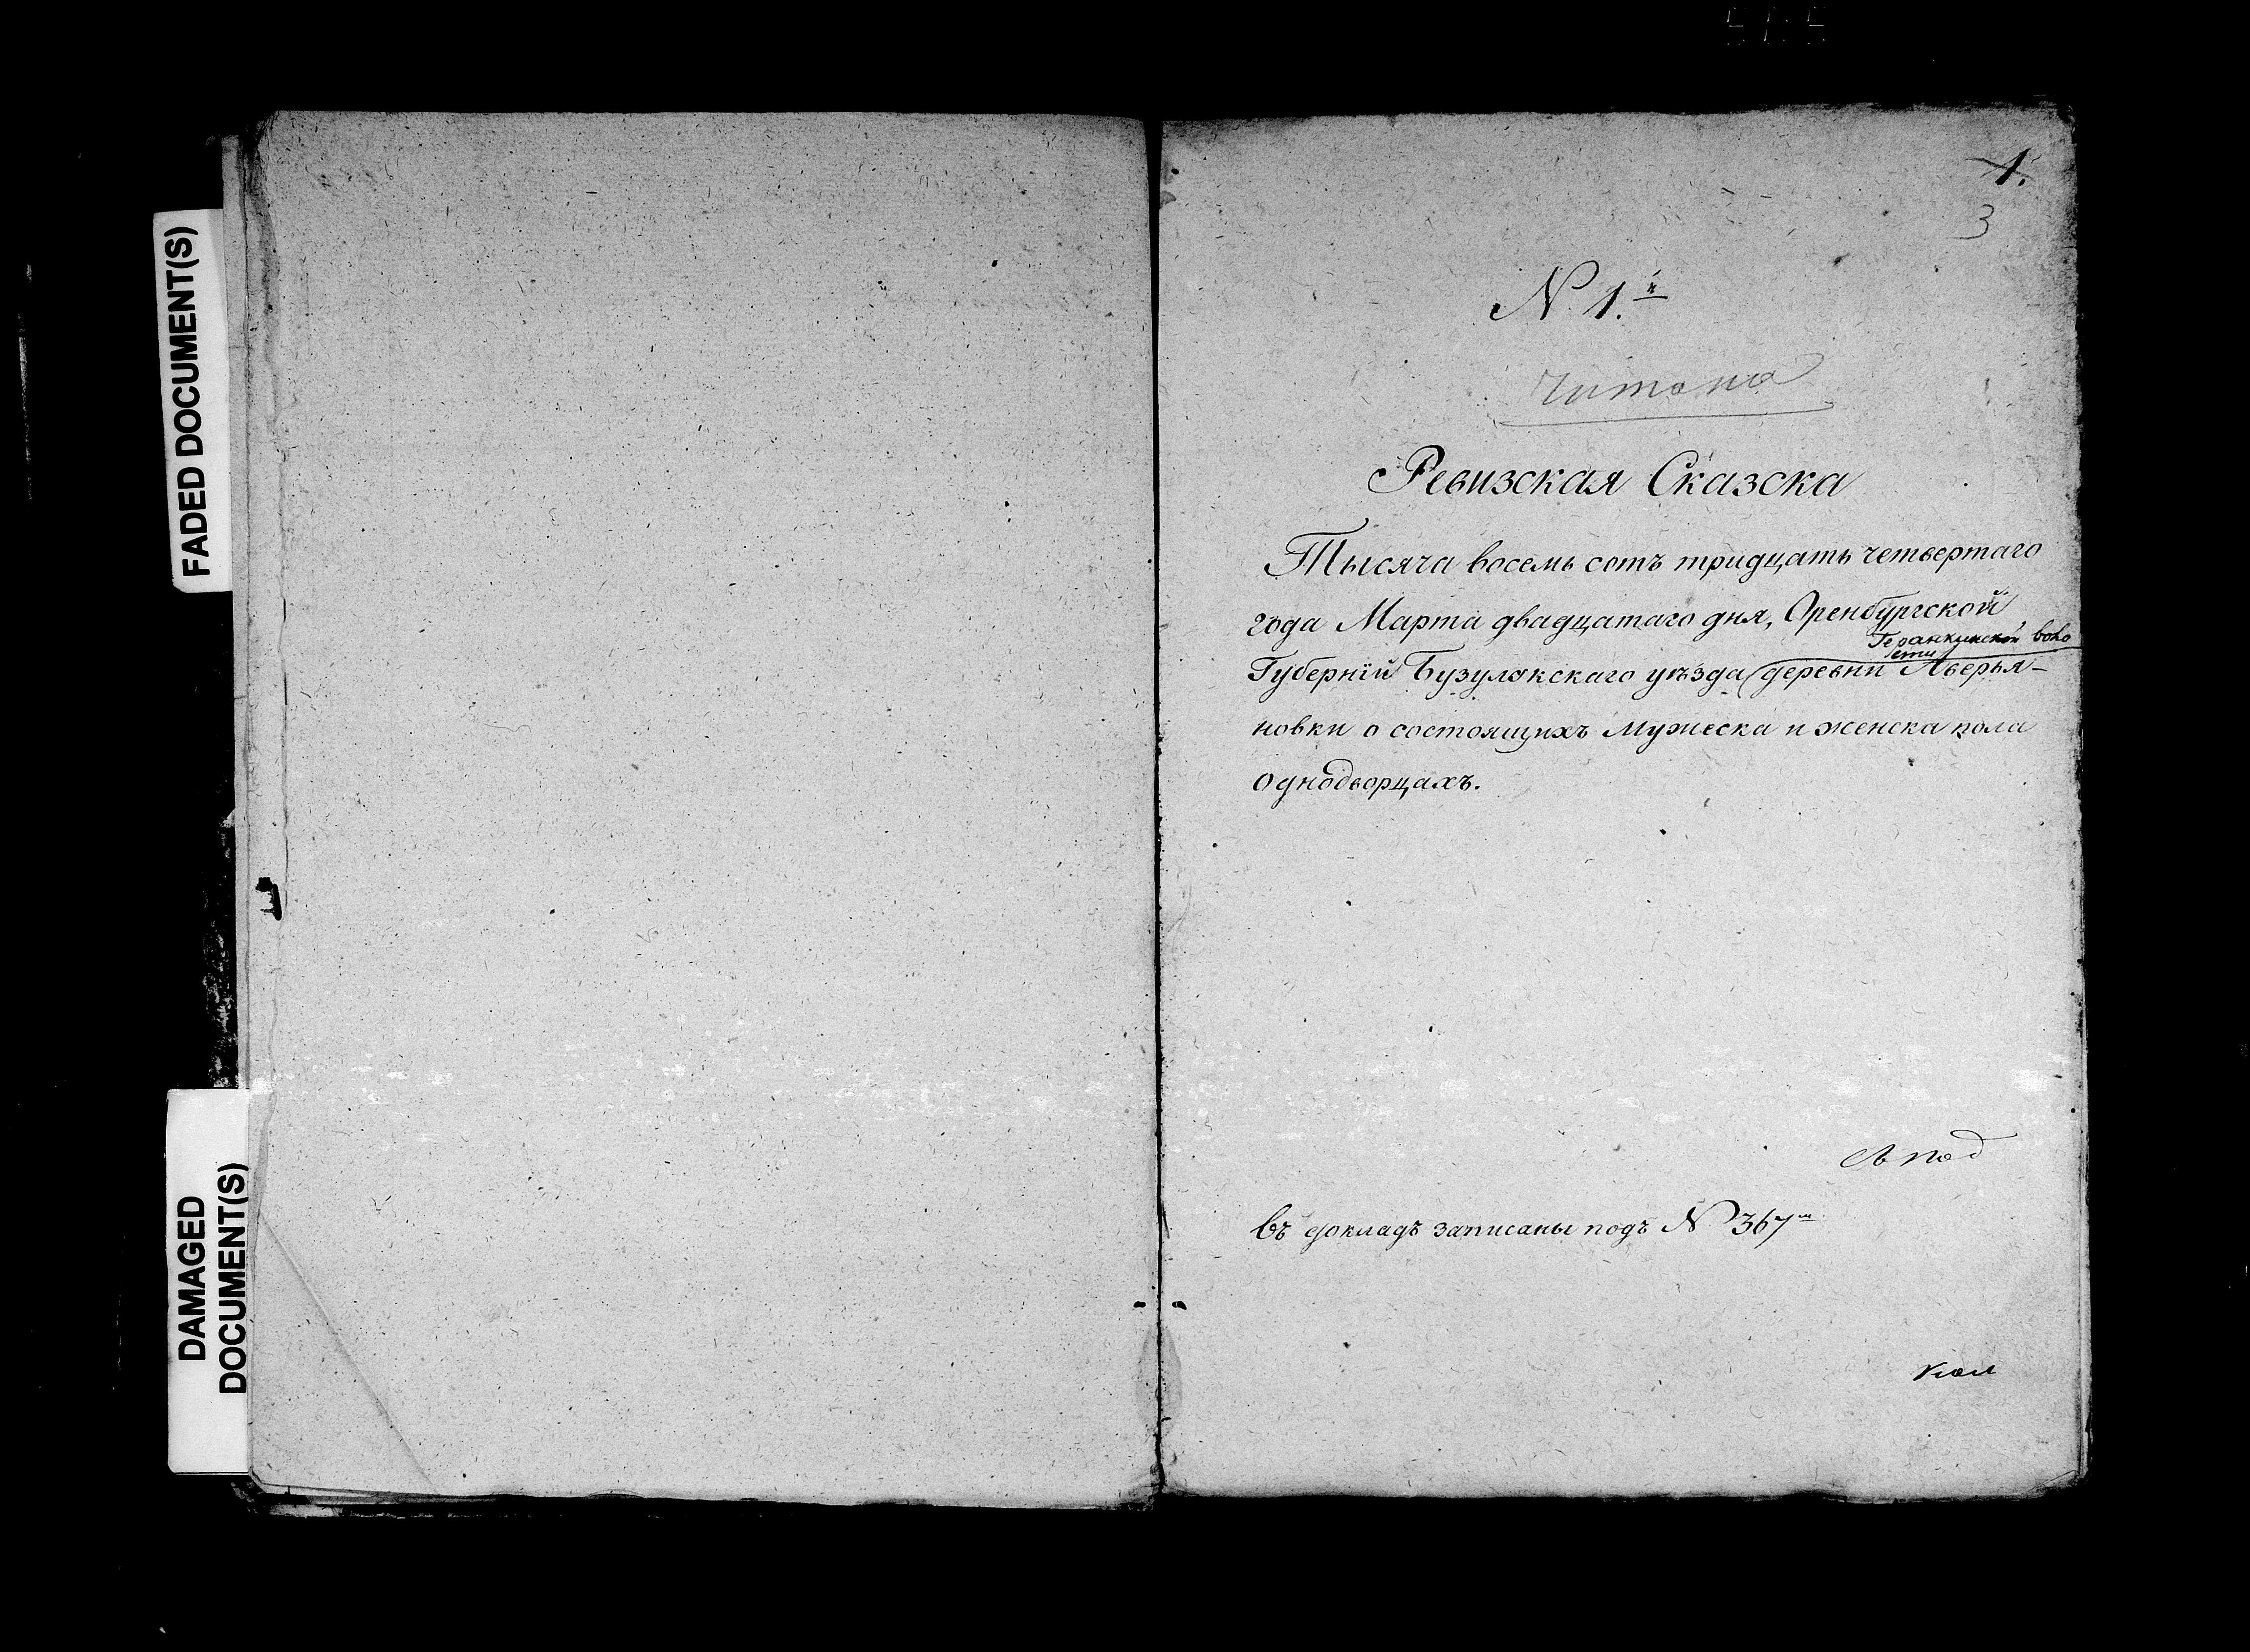 FADED DOCUMENT(S)
DAMAGED
DOCUMENT(S)
1.
3
№ 1.й
Читано
Ревизская Сказска
Тысяча восемь сотъ тридцать четвертаго
года Марта двадцатаго дня, Оренбургской
Геранкинской воло
сти
Губерніи Бузулукскаго уѣзда деревни Аверья-
новки о состоящихъ Мужеска и женска пола
однодворцахъ.
въ докладъ записаны подъ № 367м